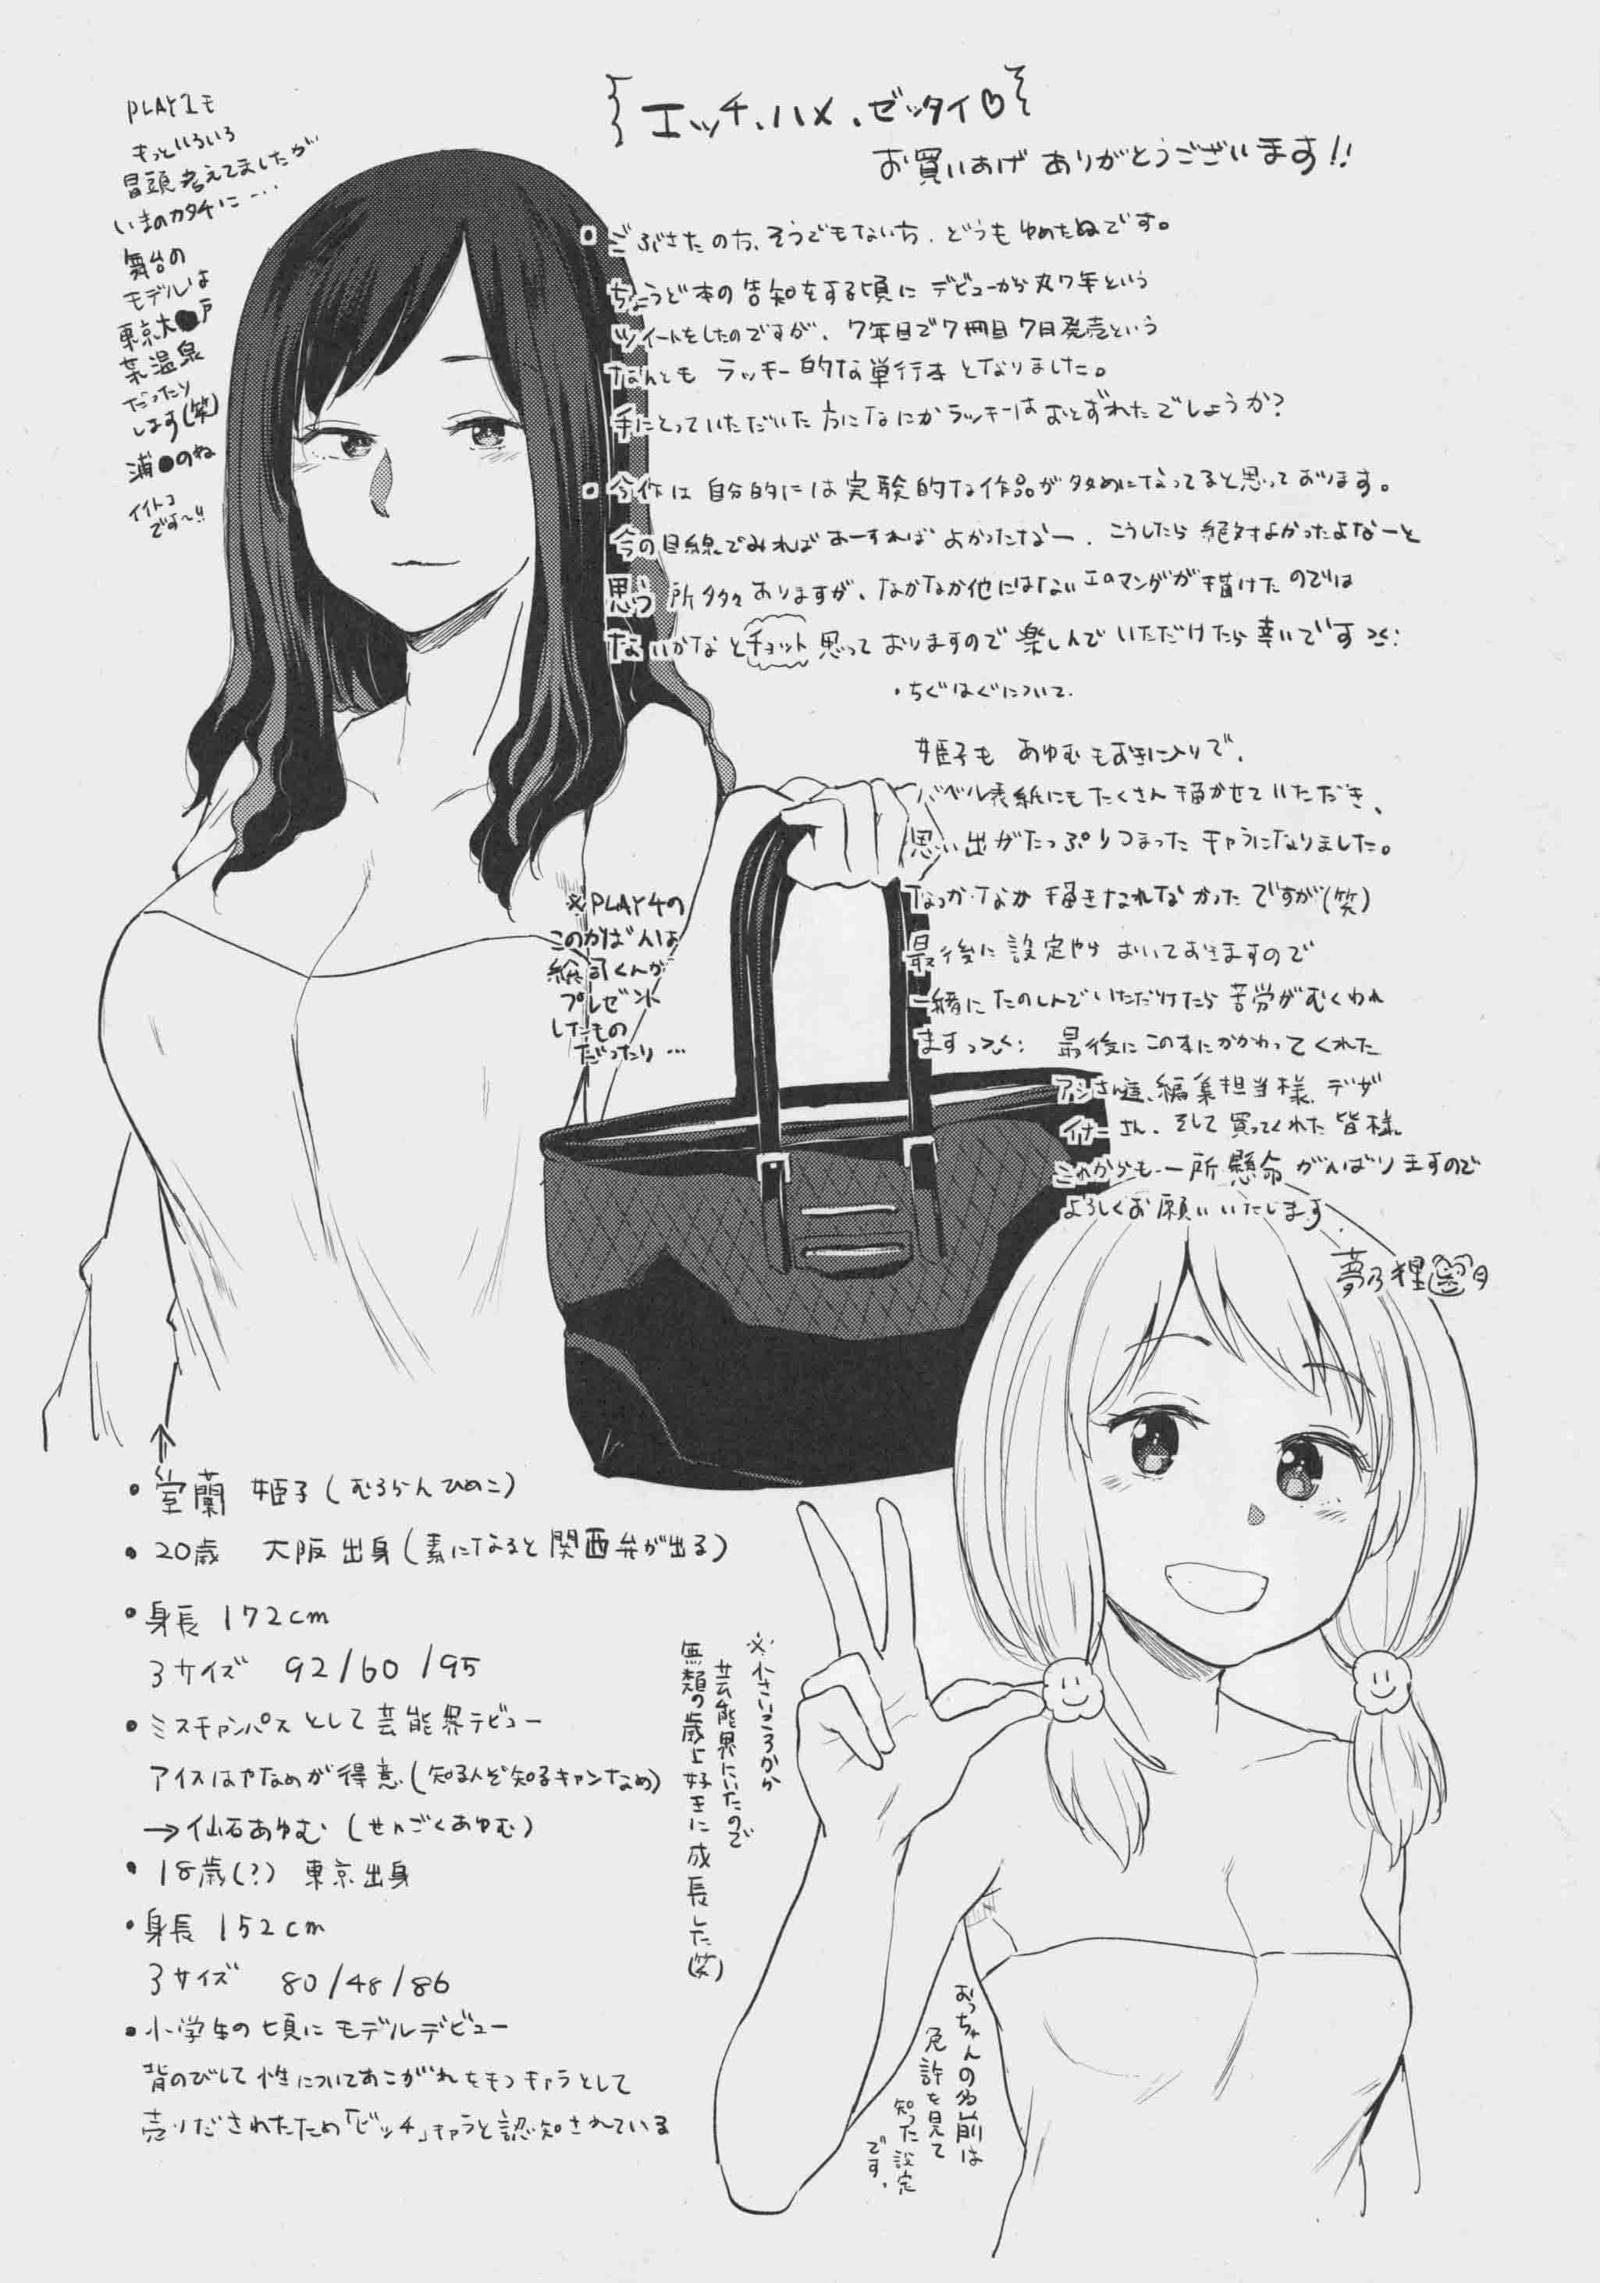 エッチ、ハメ、ゼッタイ♡
お買いあげ ありがとうございます!!
PLAY1も
もっといろいろ
冒頭考えてましたが
いまのカタチに…
舞台の
モデルは
東京大●戸
温泉
だったり
します(笑)
浦●のね
イイトコ
です〜!!
ごぶさたの方、そうでもない方、どうもゆめたぬです。
ちょうど本の告知をする頃に デビューから丸7年という
ツイートをしたのですが、7年目で7冊目7日発売という
なんとも ラッキー的な単行本となりました。
手にとっていただいた方になにかラッキーはおとずれたでしょうか?
今作は 自分的には実験的な作品が多めになってると思っております。
今の目線でみればあーすればよかったなー、こうしたら絶対よかったよなーと
思う所多々ありますが、なかなか他にはないエロマンガが描けたのでは
ないかなとチョット思っておりますので楽しんでいただけたら幸いです
・ちぐはぐについて、
姫子も あゆむもお気に入りで、
バベル表紙にもたくさん描かせていただき、
思い出がたっぷりつまったキャラになりました。
なっかなか描きなれなかったですが(笑)
最後に設定やら おいておきますので
一緒にたのしんでいただけたら苦労がむくわれ
ます 最後にこの本にかかわってくれた
アシさん達、編集担当様、デザ
イナーさん、そして買ってくれた皆様、
これからも一所懸命がんばりますので
よろしくお願いいたします
夢乃狸
※PLAY4の
このかばんは
くんが
プレゼント
したもの
だったり…
・室蘭 姫子(むろらんひめこ)
・20歳 大阪出身(素になると関西弁が出る)
・身長 172cm
3サイズ 92/60/95
・ミスキャンパスとして芸能界デビュー
アイスはやなめが得意(知る人ぞ知るキャンなめ)
→仙石あゆむ(せんごくあゆむ)
・18歳(?) 東京出身
・身長 152cm
3サイズ 80/48/86
・小学生の頃にモデルデビュー
背のびして性についてあこがれをもつキャラとして
売りだされたため「ビッチ」キャラと認知されている
※小さいころから
芸能界にいたので
無類の歳上好きに成長した(笑)
おっちゃんの名前は
免許を見て
知った設定
です。